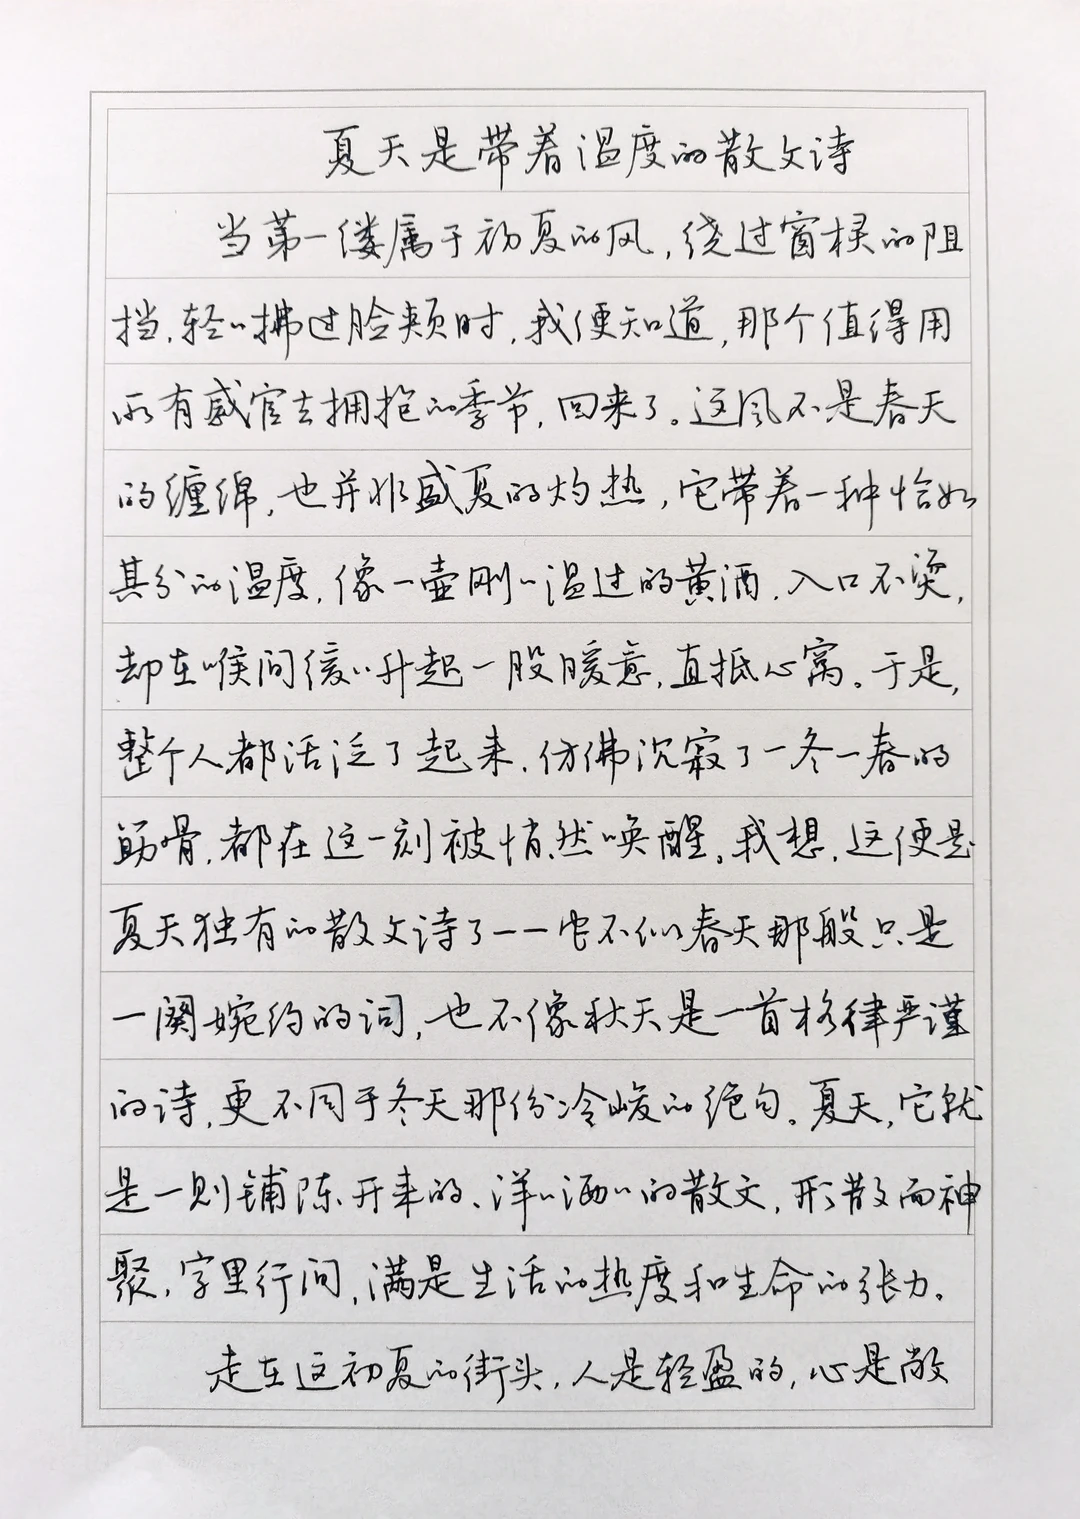 夏天是带着温度的散文诗
当第一缕属于初夏的风，绕过窗棂的阻
挡，轻轻拂过脸颊时，我便知道，那个值得用
所有感官去拥抱的季节，回来了。这风不是春天
的缠绵，也并非盛夏的灼热，它带着一种恰如
其分的温度，像一壶刚刚温过的黄酒，入口不烫，
却在喉间缓缓升起一股暖意，直抵心窝。于是，
整个人都活泛了起来，仿佛沉寂了一冬一春的
筋骨，都在这一刻被悄然唤醒。我想，这便是
夏天独有的散文诗了——它不似春天那般只是
一阕婉约的词，也不像秋天是一首格律严谨
的诗，更不同于冬天那份冷峻的绝句。夏天，它就
是一则铺陈开来的、洋洋洒洒的散文，形散而神
聚，字里行间，满是生活的热度和生命的张力。
走在这初夏的街头，人是轻盈的，心是敞